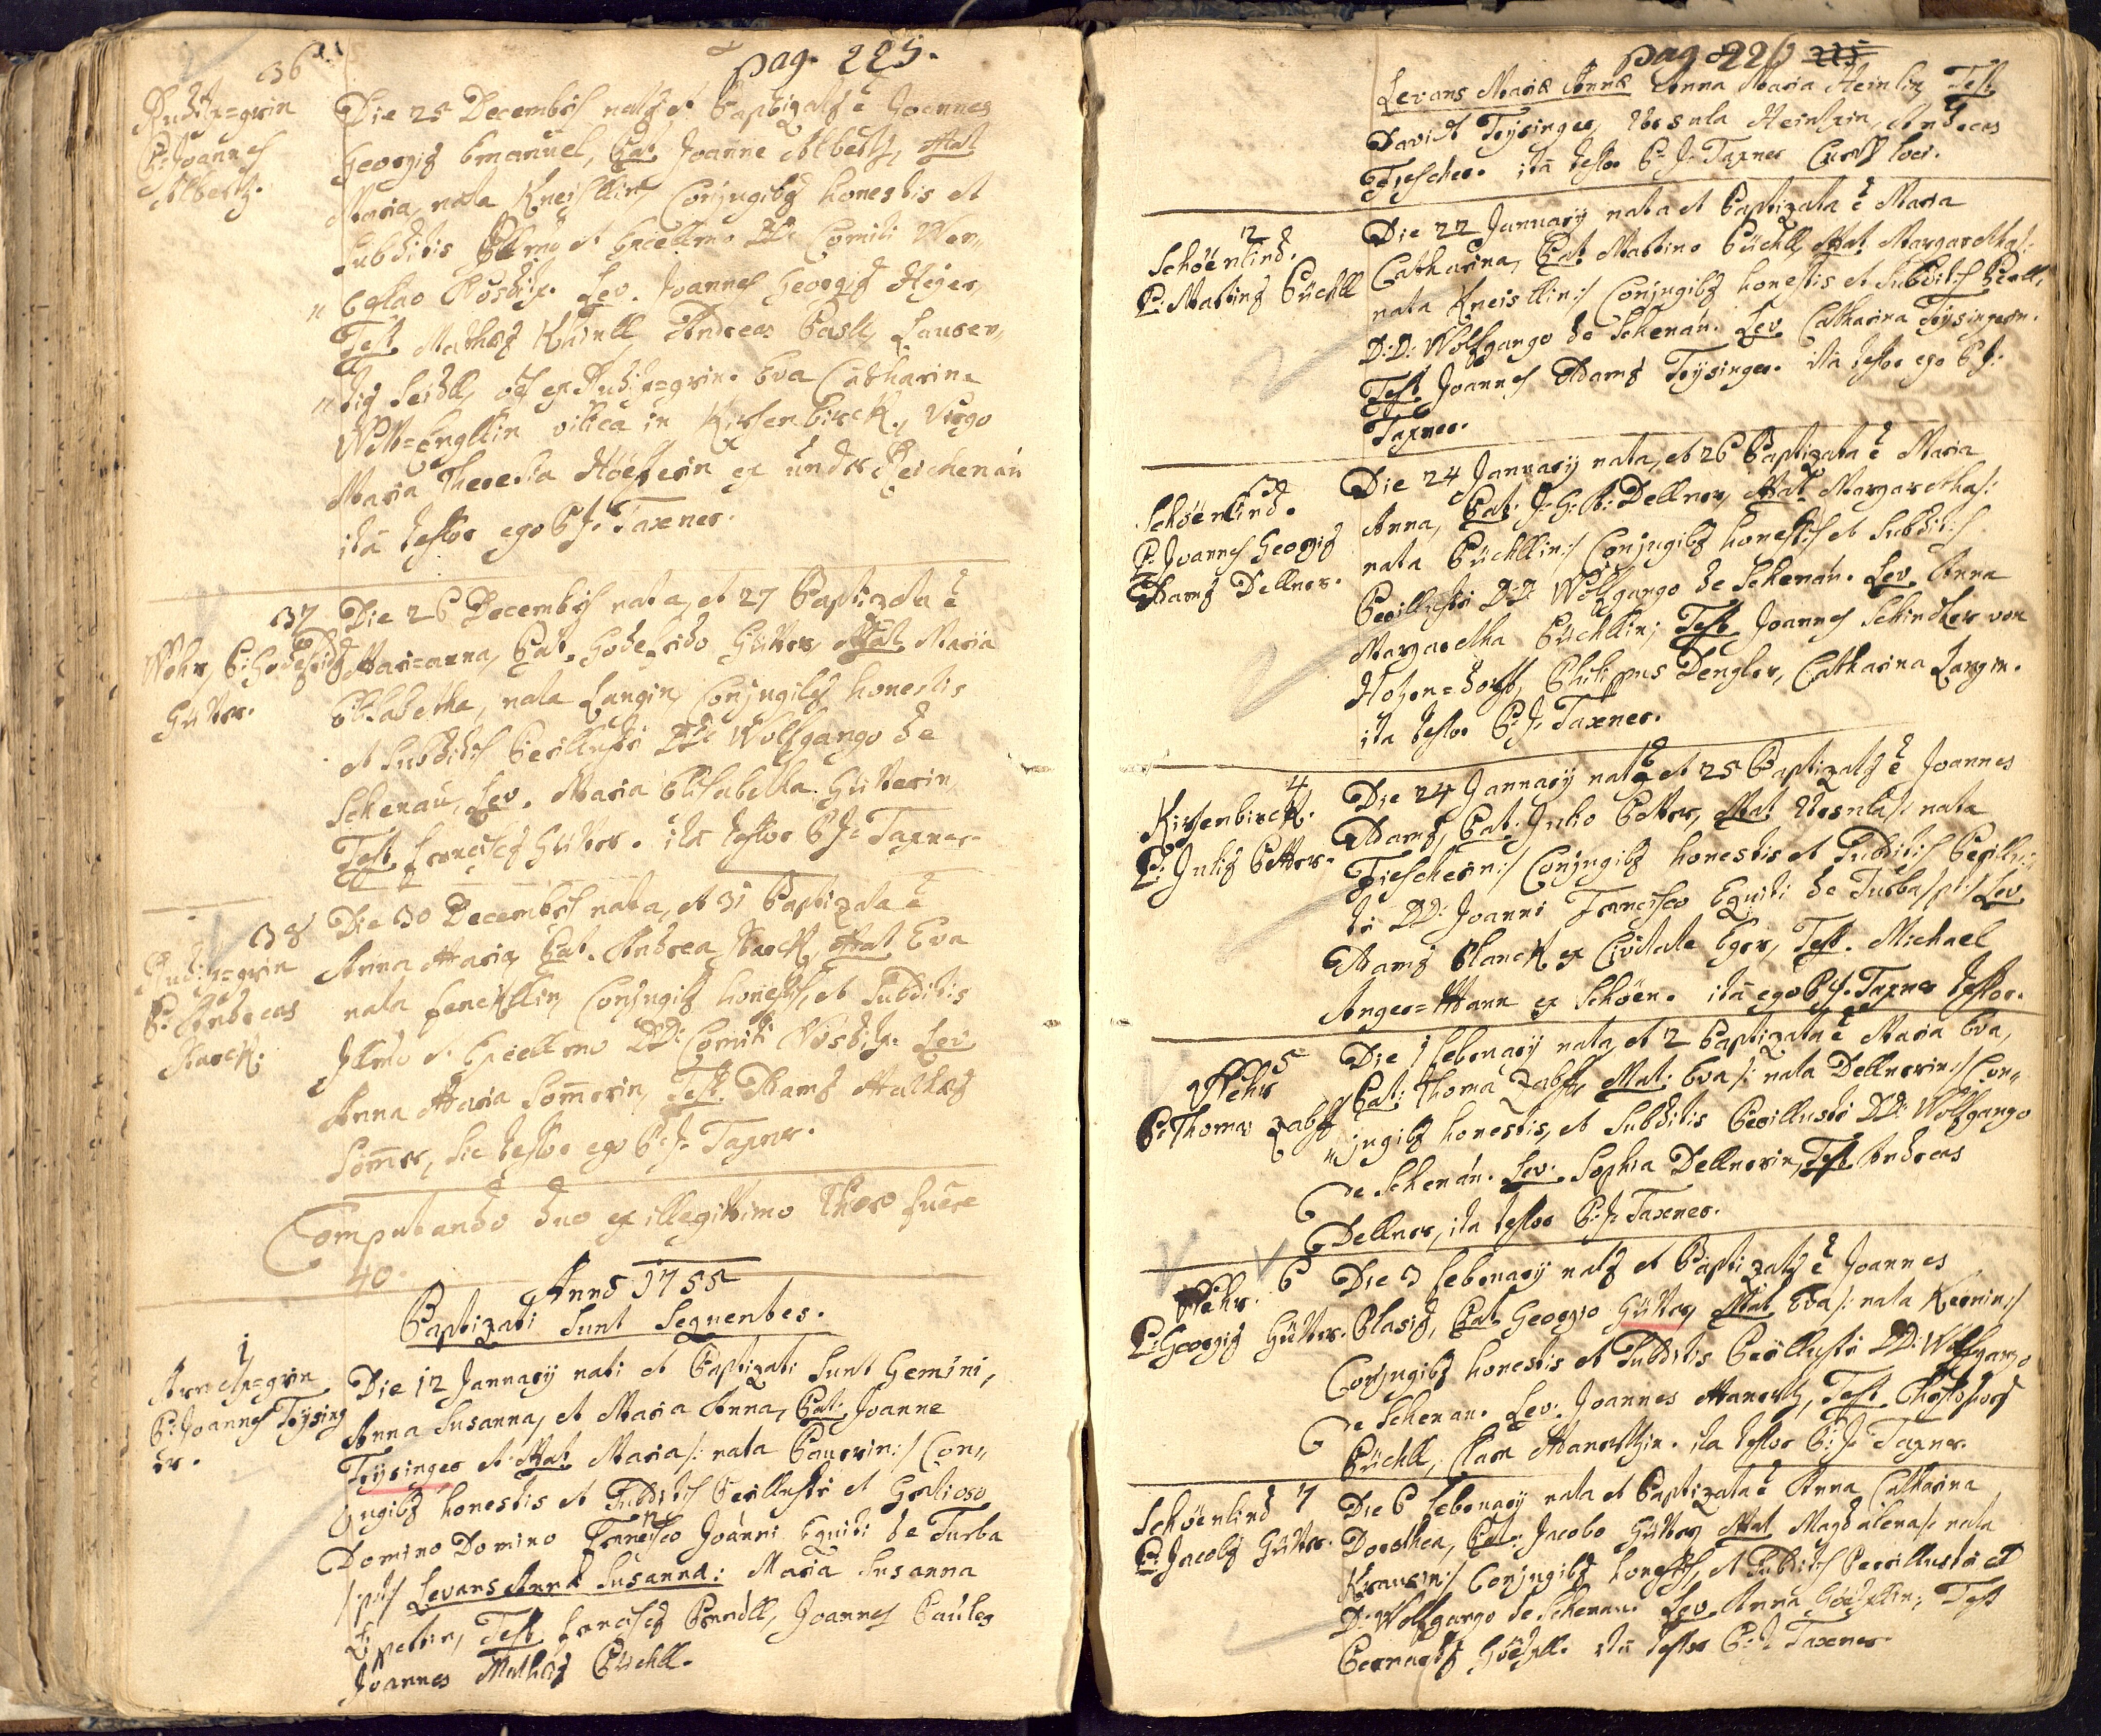 pag. 225.
36
Rudit=grin
P: Joannes
Albertz.
Die 25 Decembris natus et Baptizatus ē Joannes
Georgius Emanuel, Pat. Joanne Albertz, Mat.
Maria, nata Kneisllin, Conjugibus honestis et
Subditis Illmo et Excellmo DD: Comiti Wen„
„ceslao Nostitz. Lev. Joannes Georgius Heger,
Test. Mathæs Künll, Andreas Pastl, Lauren„
„tig Seidll, oēs ex Rudit=grin. Eva Catharina
Englin vilica in Kirsenbirck, Virgo
Maria Theresia Höeferin ex unter Reichenau
ità testor ego P: J: Taxner.
37
Wöhr, P: Godefridus
Gütter.
Die 26 Decembris nata, et 27 Baptizata ē
Mari=anna, Pat. Godefrido Gütter, Mat. Maria
Elisabetha, nata Langin, Conjugibus honestis
et Subditis Perillustri DD: Wolfgango de
Schenau, Lev. Maria Elisabetha Gütterin,
Test. Franciscus Gütter. ità testor P: J: Taxner.
38
Rudit=grin
P: Andreas
Starck.
Die 30 Decembris nata, et 31 Baptizata ē
Anna Maria, Pat. Andrea Starck, Mat. Eva
nata Fenckllin, Conjugibus honestis, et Subditis
Illmo et Excellmo DD: Comiti Nostitz. Lev.
Anna Maria Som̄erin, Test. Adamus Mathæs
Som̄er, sic testor ego P: J: Taxner.
Computando duo ex illegittimo thoro fuēre
40.
Anno 1755
Baptizati Sunt Sequentes.
1
P: Joannes Trysing
er.
Die 12 January nati et Baptizati Sunt Gemini,
Anna Susanna, et Maria Anna, Pat: Joanne
Trysinger et Mat: Maria /: nata Paurin:/ Con„
jugibus honestis et Subditis Perillustri et Gratioso
Domino Domino Francisco Joanni Equiti de Turba
/:pt:/ Levans Annæ Susannæ: Maria Susanna
Lipertin, Test. Franciscus Prandll, Joannes Pauler
Joannes Mathæs Püchll.
pag. 226 225
Levans Mariæ Annæ Anna Maria Heinlin, Test.
David Trysinger, Ursula Heinlin, Andreas
Fiescher. ità testor P: J: Taxner Curatus loci.
2
Schöenlind.
P: Martinus Püchll
Die 22 January nata et Baptizata ē Maria
Catharina, Pat. Martino Püchll, Mat. Margaretha /:
nata Kneisllin:/ Conjugibus honestis et Subditis Perill.
D: D: Wolfgango de Schenau. Lev. Catharina Trysingerin.
Test. Joannes Adamus Trysinger. ità testor ego P: J:
Taxner.
3
Schöenlind.
P: Joannes Georgius
Adamus Dellner.
Die 24 January nata, et 26 Baptizata ē Maria
Anna, Pat: J: G: A: Dellner, Mat. Margaretha /:
nata Püchllin:/ Conjugibus honestis et Subditis
Perillustri D: D: Wolfgango de Schenau. Lev. Anna
Margaretha Püchllin; Test. Joannes Schindler von
Hohen=dorff, Philippus Dengler, Catharina Langin.
ita testor P: J: Taxner.
4
Kirsenbirck.
P: Julius Petter.
Die 24 January natus et 25 Baptizatus ē Joannes
Adamus, Pat. Julio Petter, Mat. Ursula /: nata
Fiescherin:/ Conjugibus honestis et Subditis Perillus„
tri DD: Joanni Francisco Equiti de Turba /:pt:/ Lev.
Adamus Planck ex Civitate Egra, Test. Michael
Anger=Mann ex Schöen. ità ego P: J: Taxner testor.
5
Wöhr
P: Thomas Zabst
Die 1 Februarij nata, et 2 Baptizata ē Maria Eva,
Pat: Thoma Zabst, Mat: Eva /: nata Dellnerin:/ Con„
„jugibus honestis, et Subditis Perillustri DD: Wolfgango
de Schenau. Lev. Sophia Dellnerin, Test. Andreas
Dellner, ita testor P: J: Taxner.
6
Wöhr.
P: Georgius Gütter.
Die 3 Februarij natus et Baptizatus ē Joannes
Blasius, Pat. Georgio Gütter, Mat. Eva /: nata Kernin:/
Conjugibus honestis et Subditis Perillustri DD: Wolfgango
de Schenau. Lev: Joannes Manertz, Test. Christophorus
Püchll, Clara Manertzin. ita testor P: J: Taxner.
7
Schöenlind
P: Jacobus Gütter.
Die 6 Februarij nata et Baptizata ē Anna Catharina
Dorothea, Pat: Jacobo Gütter, Mat. Magdalena /: nata
Krausin:/ Conjugibus honestis, et Subditis Perillustri D
D: Wolfgango de Schenau. Lev. Anna Götzllin; Test
Bernardus Götzll. ità testor P: J: Taxner.